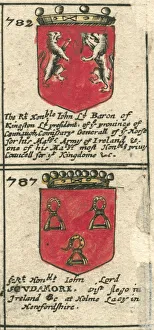 782
The Rt. Honble Iohn Ld Baron of
Kingston Ld president of ye province of
Connaugh, Comisary Generall of ye Horse
for his Maties Army of Ireland &
one of his Maties most Honble privy
Councell for yt Kingdome &c.
787
Rt. Honble Iohn Lord
SCUDAMORE, Vist Slego in
Ireland &c at Holme Lacy in
Herefordshire.